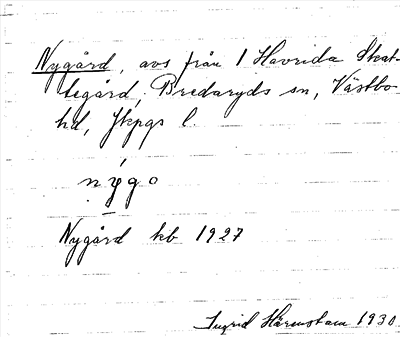 Nygård, avs från 1 Havrida Skat-
tegård, Bredaryds sn, Västbo
hd, Jkpgs l
nygo
Nygård kb 1927
Ingrid Härenstam 1930